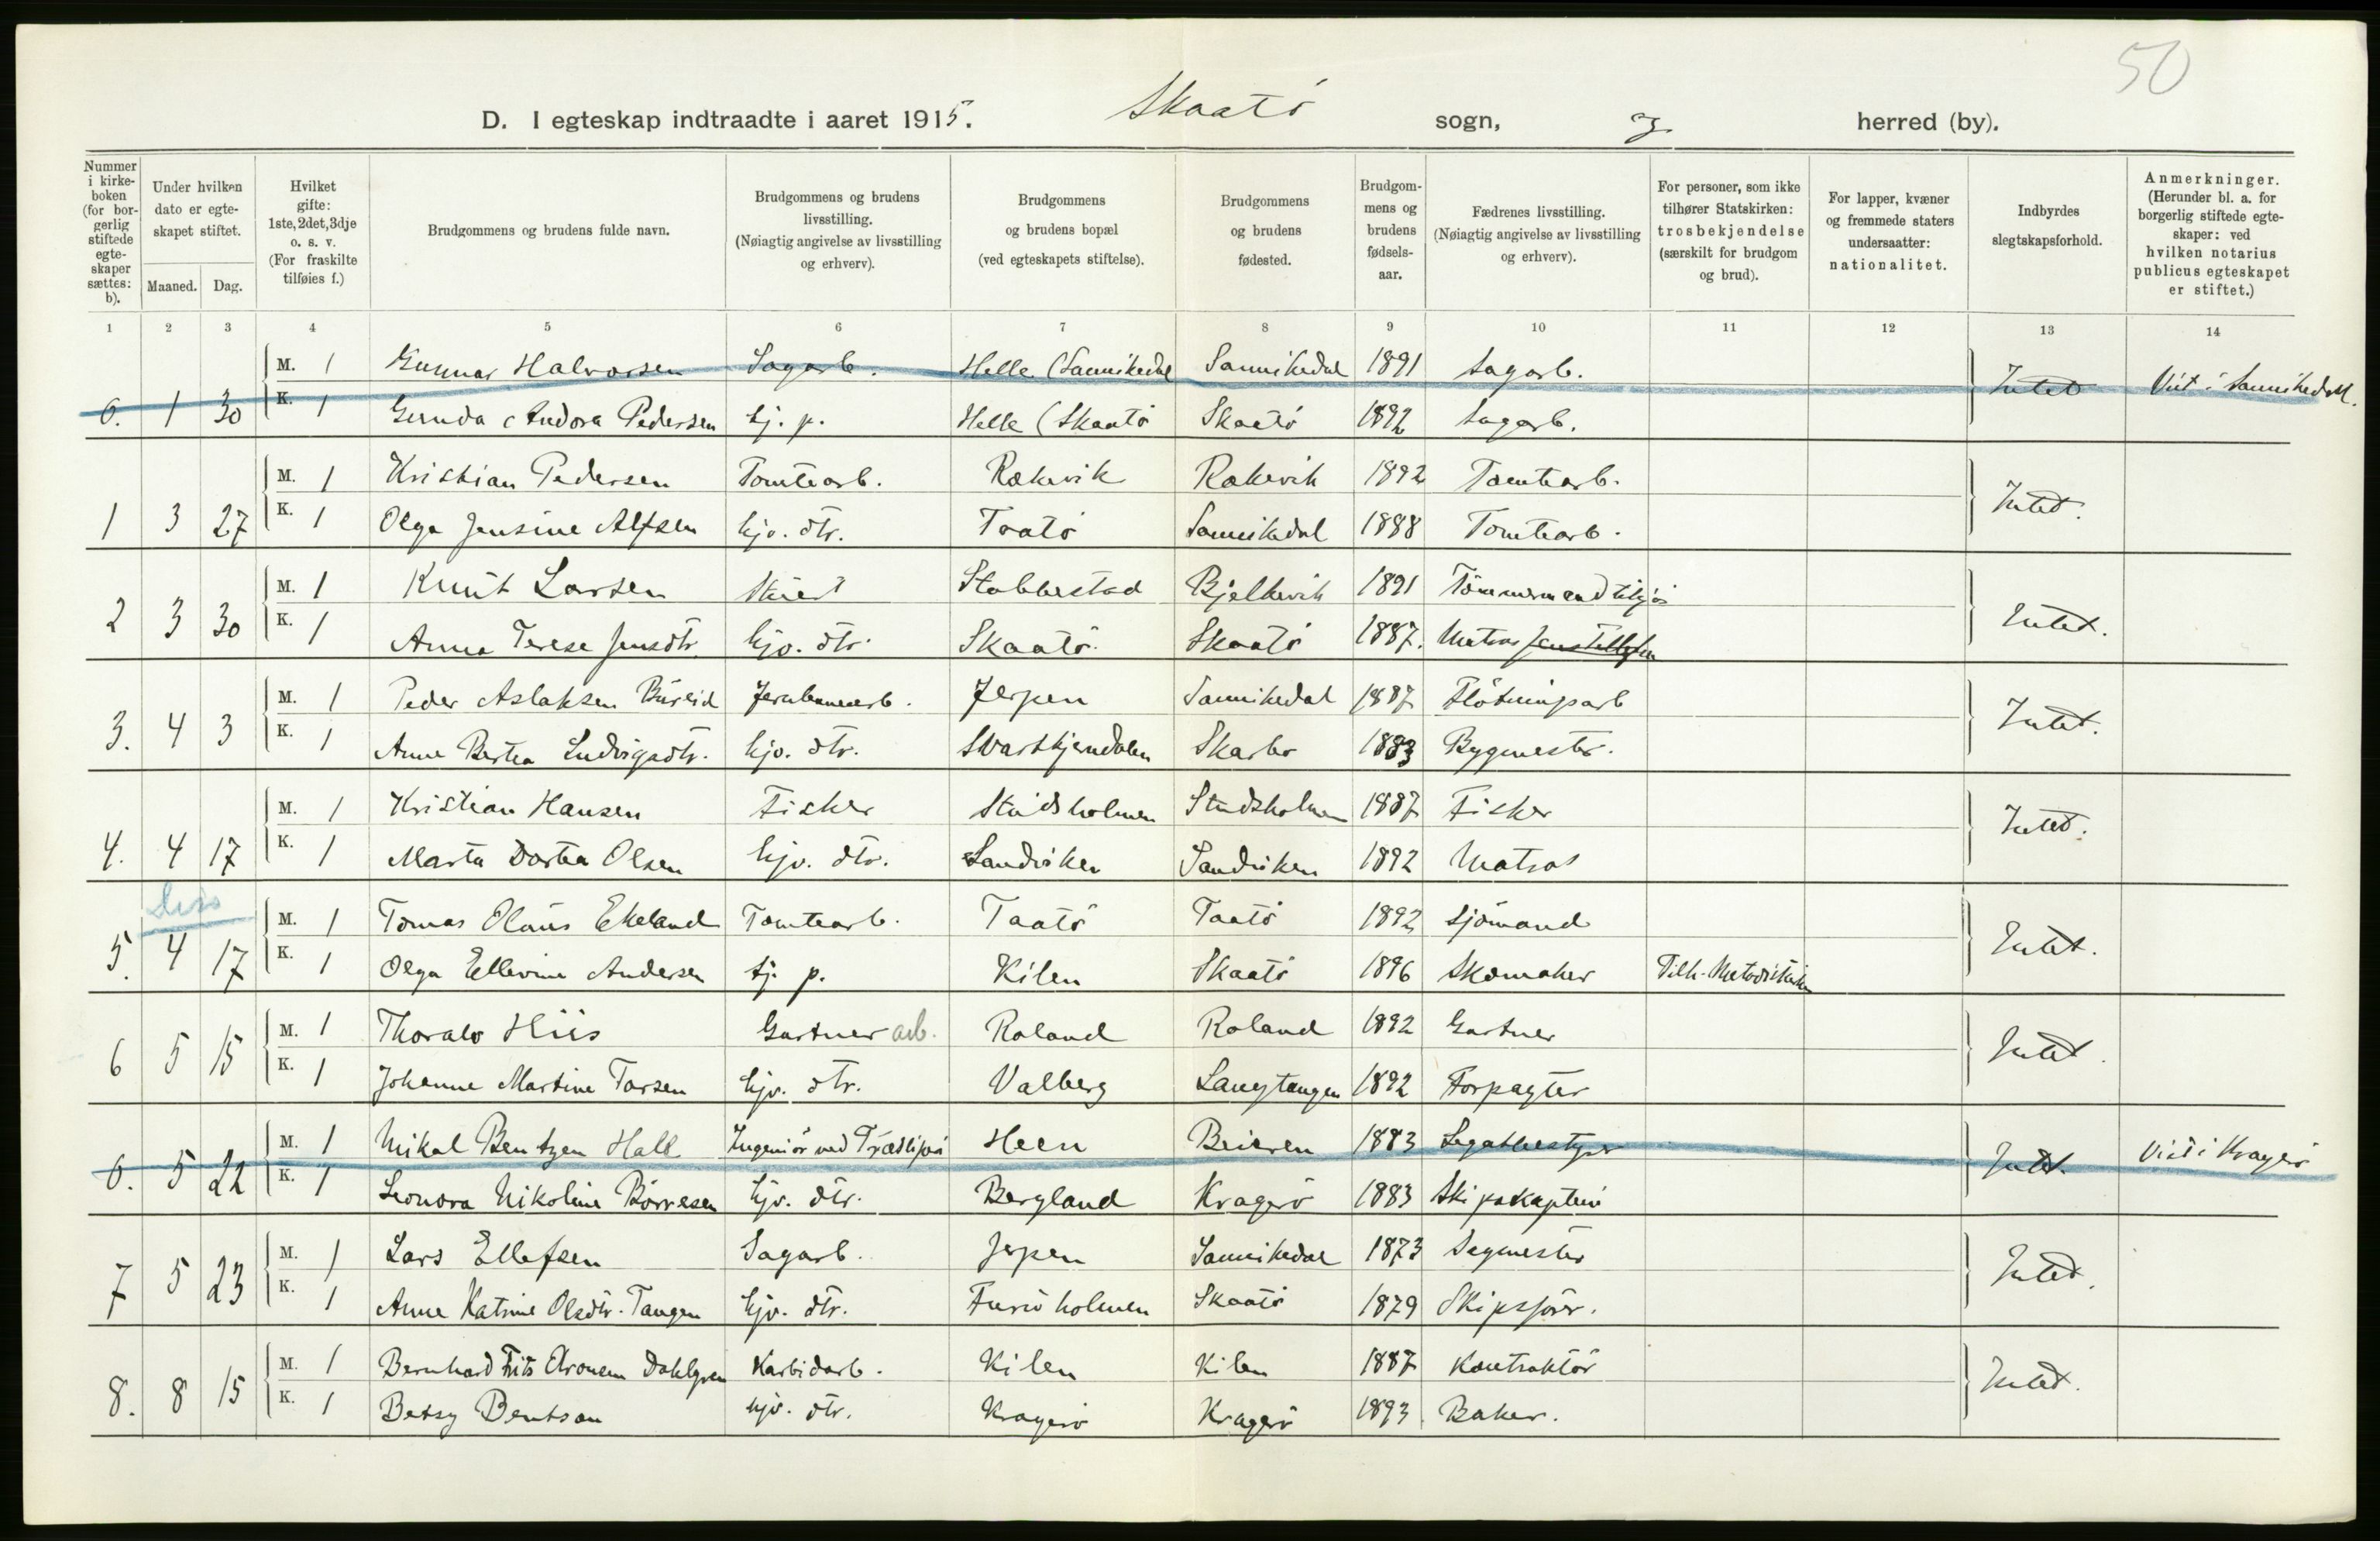 50
D. I egteskap indtraadte i aaret 1915. Skaatö sogn, herred (by).
Nummer i kirke-boken (for bor-gerlig stiftede egte-skaper sættes: b).
Under hvilken dato er egte-skapet stiftet.
Maaned. Dag.
Hvilket gifte: 1ste, 2det, 3dje o. s. v. (For fraskilte tilføies f.)
Brudgommens og brudens fulde navn.
Brudgommens og brudens livsstilling. (Nøiagtig angivelse av livsstilling og erhverv).
Brudgommens og brudens bopæl (ved egteskapets stiftelse).
Brudgommens og brudens fødested.
Brudgom-mens og brudens fødsels-aar.
Fædrenes livsstilling. (Nøiagtig angivelse av livsstilling og erhverv).
For personer, som ikke tilhører Statskirken: trosbekjendelse (særskilt for brudgom og brud).
For lapper, kvæner og fremmede staters undersaatter: nationalitet.
Indbyrdes slegtskapsforhold.
Anmerkninger. (Herunder bl. a. for borgerlig stiftede egte-skaper: ved hvilken notarius publicus egteskapet er stiftet.)
1 2 3 4 5 6 7 8 9 10 11 12 13 14
M. 1 Gunnar Halvorsen Sagarb. Helle (Sannikedal Sannikedal 1891 Sagarb.
0. 1 30 K. 1 Geruda Andora Pedersen tj. p. Helle (Skaatö Skaatö 1892 Sagarb. Intet Viet i Sannikedal.
M. 1 Kristian Pedersen Tomtearb. Rækevik Rækevik 1892 Tomtearb.
1 3 27 K. 1 Olga Jensine Alfsen hjv. dtr. Taatö Sannikedal 1888 Tomtearb. Intet.
M. 1 Knut Larsen Stuert Stabbestad Bjelkevik 1891 Tömmermand tilsjös
2 3 30 K. 1 Anna Terese Jensdtr. hjv. dtr. Skaatö Skaatö 1887. Matros Intet.
M. 1 Peder Aslaksen Bureid Jernbanearb. Jerpen Sannikedal 1887 Flötningsarb
3. 4 3 K. 1 Anne Bertea Ludvigsdtr. hjv. dtr. Svartkjerndalen 1883 Bygmester. Intet.
M. 1 Kristian Hansen Fisker Studsholmen Studsholmen 1887 Fisker
4. 4 17 K. 1 Marta Dortea Olsen hjv. dtr. Sandviken Sandviken 1892 Matros Intet.
Diss
M. 1 Tomas Olaus Ekeland Tomtearb. Taatö Taatö 1892 Sjömand
5. 4 17 K. 1 Olga Ellevine Andersen tj. p. Kilen Skaatö 1896 Skomaker Tilh. Metodistkirken Intet.
M. 1 Thoralv Hiis Gartner arb. Roland Roland 1892 Gartner
6 5 15 K. 1 Johanne Martine Tarsen hjv. dtr. Valberg Langtangen 1892 Forpagter Intet.
M. 1 Mikal Bentzen Hall Ingeniör ved Træsliperi Heen Beieren 1883 Legatbestyrer
0. 5 22 K. 1 Leonora Nikoline Börresen hjv. dtr. Bergland Kragerö 1883 Skipskaptein Intet. Viet i Kragerö
M. 1 Lars Ellefsen Sagarb. Jerpen Sannikedal 1873 Sagmester
7 5 23 K. 1 Anne Katrine Olsdtr. Tangen hjv. dtr. Furuholmen Skaatö 1879 Skipsförer. Intet.
M. 1 Bernhard Frits Aronsen Dahlgren Karbidarb. Kilen Kilen 1887 Kontraktör
8. 8 15 K. 1 Betsy Bentson hjv. dtr. Kragerö Kragerö 1893 Baker. Intet.